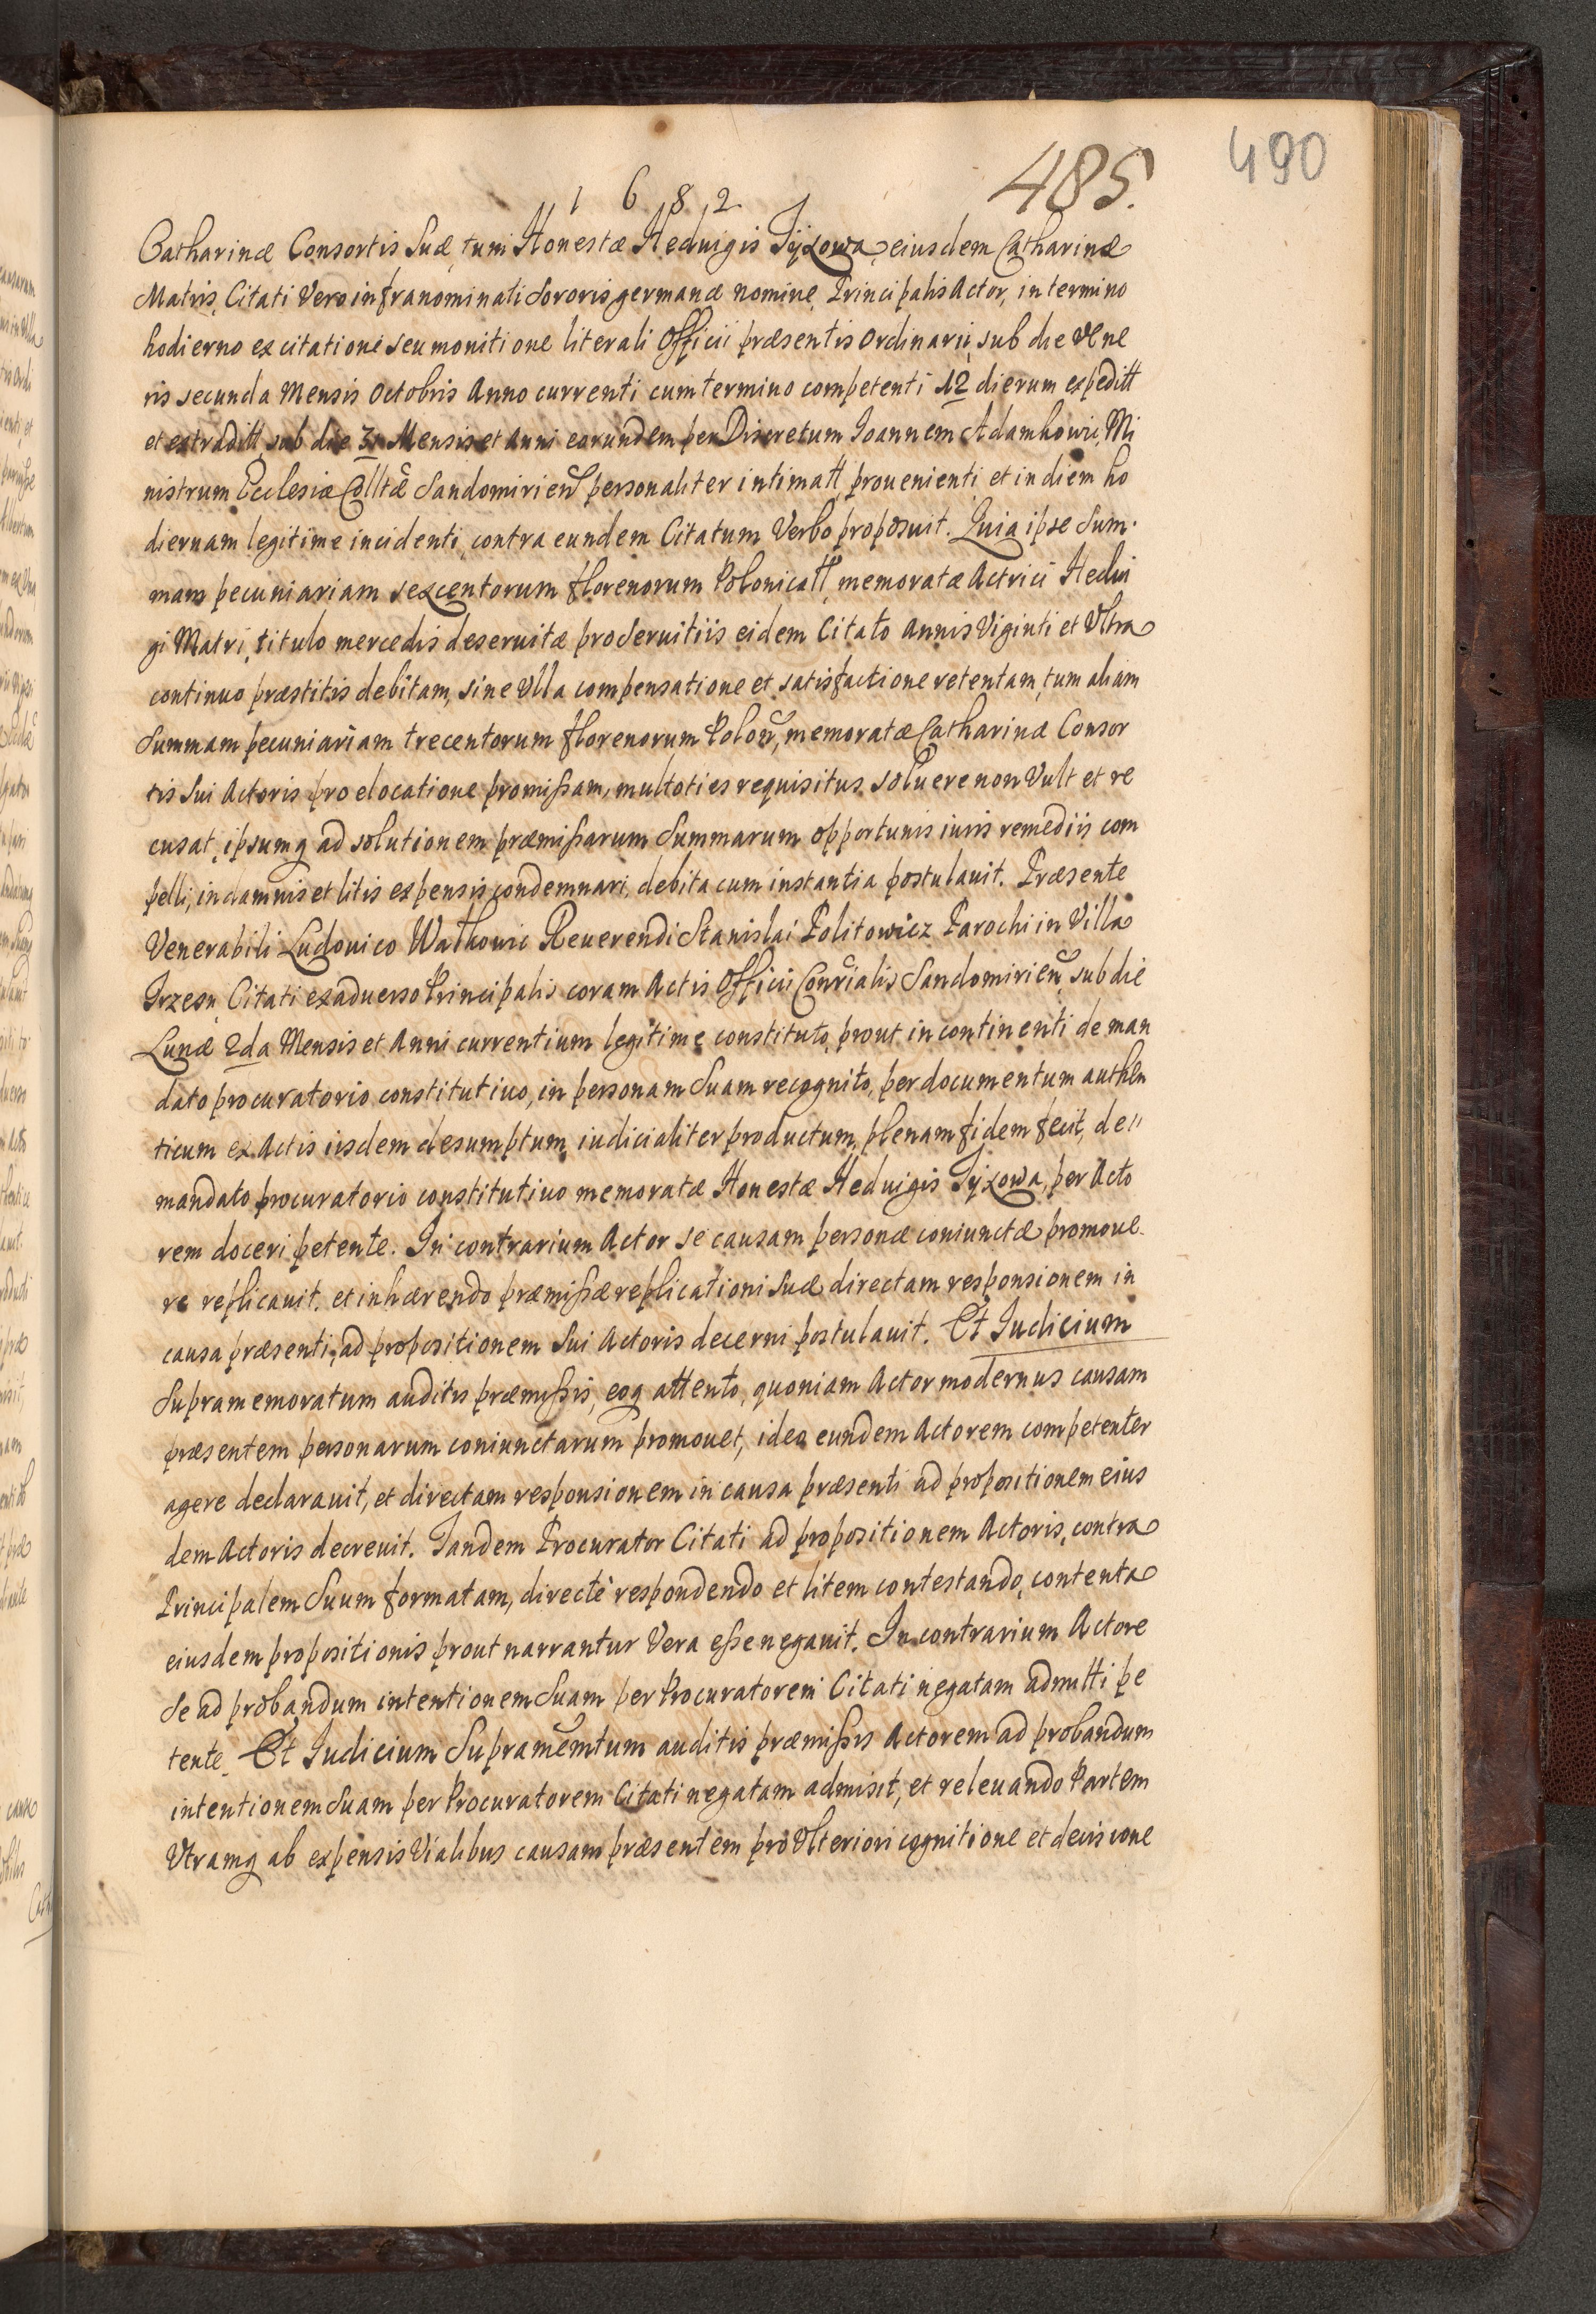 1682
485.
490
Catharinæ Consortis Suæ, tum Honestæ Heduigis Tyxowa, eiusdem Catharinæ
Matris, Citati Vero infranominati Sororis germanæ nomine, Principalis Actor, in termino
hodierno ex citatione seu monitione literali Officii præsentis Ordinarii, sub die Vene
ris secunda Mensis Octobris Anno currenti cum termino competenti 12 dierum expeditt
et extraditt, sub die 3a Mensis et Anni eorundem per Discretum Joannem Adamkowic, Mi
nistrum Ecclesiæ Colltæ Sandomirien personaliter intimatt, prouenienti et in diem ho
diernam legitime incidenti, contra eundem Citatum Verbo proposuit. Quia ipse Sum
mam pecuniariam sexcentorum florenorum Polonicatt, memoratæ Actrici Hedui
gi Matri, titulo mercedis deseruitæ pro Seruitiis eidem Citato Annis Viginti et Vltra
continuo præstitis debitam, sine Vlla compensatione et satisfactione retentam, tum aliam
Summam pecuniariam trecentorum florenorum Polon, memoratæ Catharinæ Consor
tis Sui Actoris pro elocatione promißam, multoties requisitus soluere non Vult et re
cusat, ipsumq ad solutionem præmißarum Summarum opportunis iuris remediis com
pelli, in damnis et litis expensis condemnari, debita cum instantia postulauit. Præsente
Venerabili Ludouico Watkowic Reuerendi Stanislai Politowicz Parochi in Villa
Trzesn, Citati ex aduerso Principalis coram Actis Officii Conrialis Sandomirien, sub die
Lunæ 2da Mensis et Anni currentium legitime constituto, prout in continenti de man
dato procuratorio constitutiuo, in personam Suam recognito, per documentum authen
ticum ex Actis iisdem desumptum, iudicialiter productum, plenam fidem fecit, de
mandato procuratorio constitutiuo memoratæ Honestæ Heduigis Tyxowa, per Acto
rem doceri petente. In contrarium Actor se causam personæ coniunctæ promoue
re replicauit, et inhærendo præmißæ replicationi Suæ directam responsionem in
causa præsenti, ad propositionem Sui Actoris decerni postulauit. Et Judicium
Supramemoratum auditis præmißis, eoq attento, quoniam Actor modernus causam
præsentem personarum coniunctarum promouet, ideo eundem Actorem competenter
agere declarauit, et directam responsionem in causa præsenti ad propositionem eius
dem Actoris decreuit. Tandem Procurator Citati ad propositionem Actoris, contra
Principalem Suum formatam, directe respondendo et litem contestando, contenta
eiusdem propositionis prout narrantur Vera eße negauit. In contrarium Actore
Se ad probandum intentionem Suam per Procuratorem Citati negatam admitti pe
tente. Et Judicium Supramemtum auditis præmißis Actorem ad probandum
intentionem Suam per Procuratorem Citati negatam admisit, et releuando Partem
Vtramq ab expensis Vialibus causam præsentem pro Vlteriori cognitione et decisione